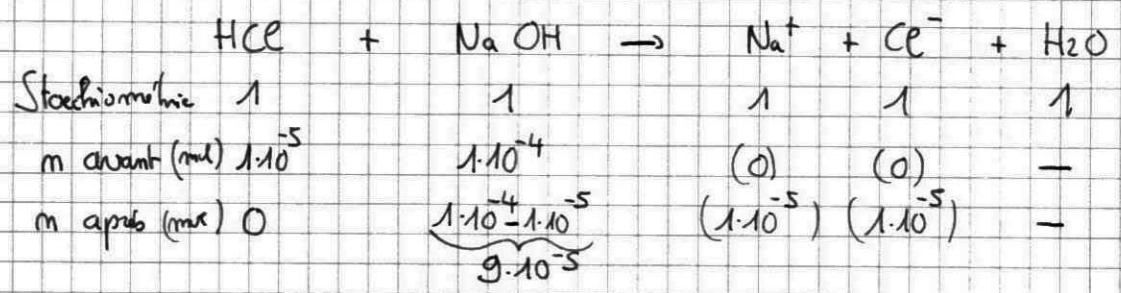 HCl + NaOH → Na⁺ + Cl⁻ + H2O
Stoechiométrie 1 1 1 1 1
n avant (mol) 1·10⁻⁵ 1·10⁻⁴ (0) (0) —
n après (mol) 0 1·10⁻⁴-1·10⁻⁵ (1·10⁻⁵) (1·10⁻⁵) —
9·10⁻⁵